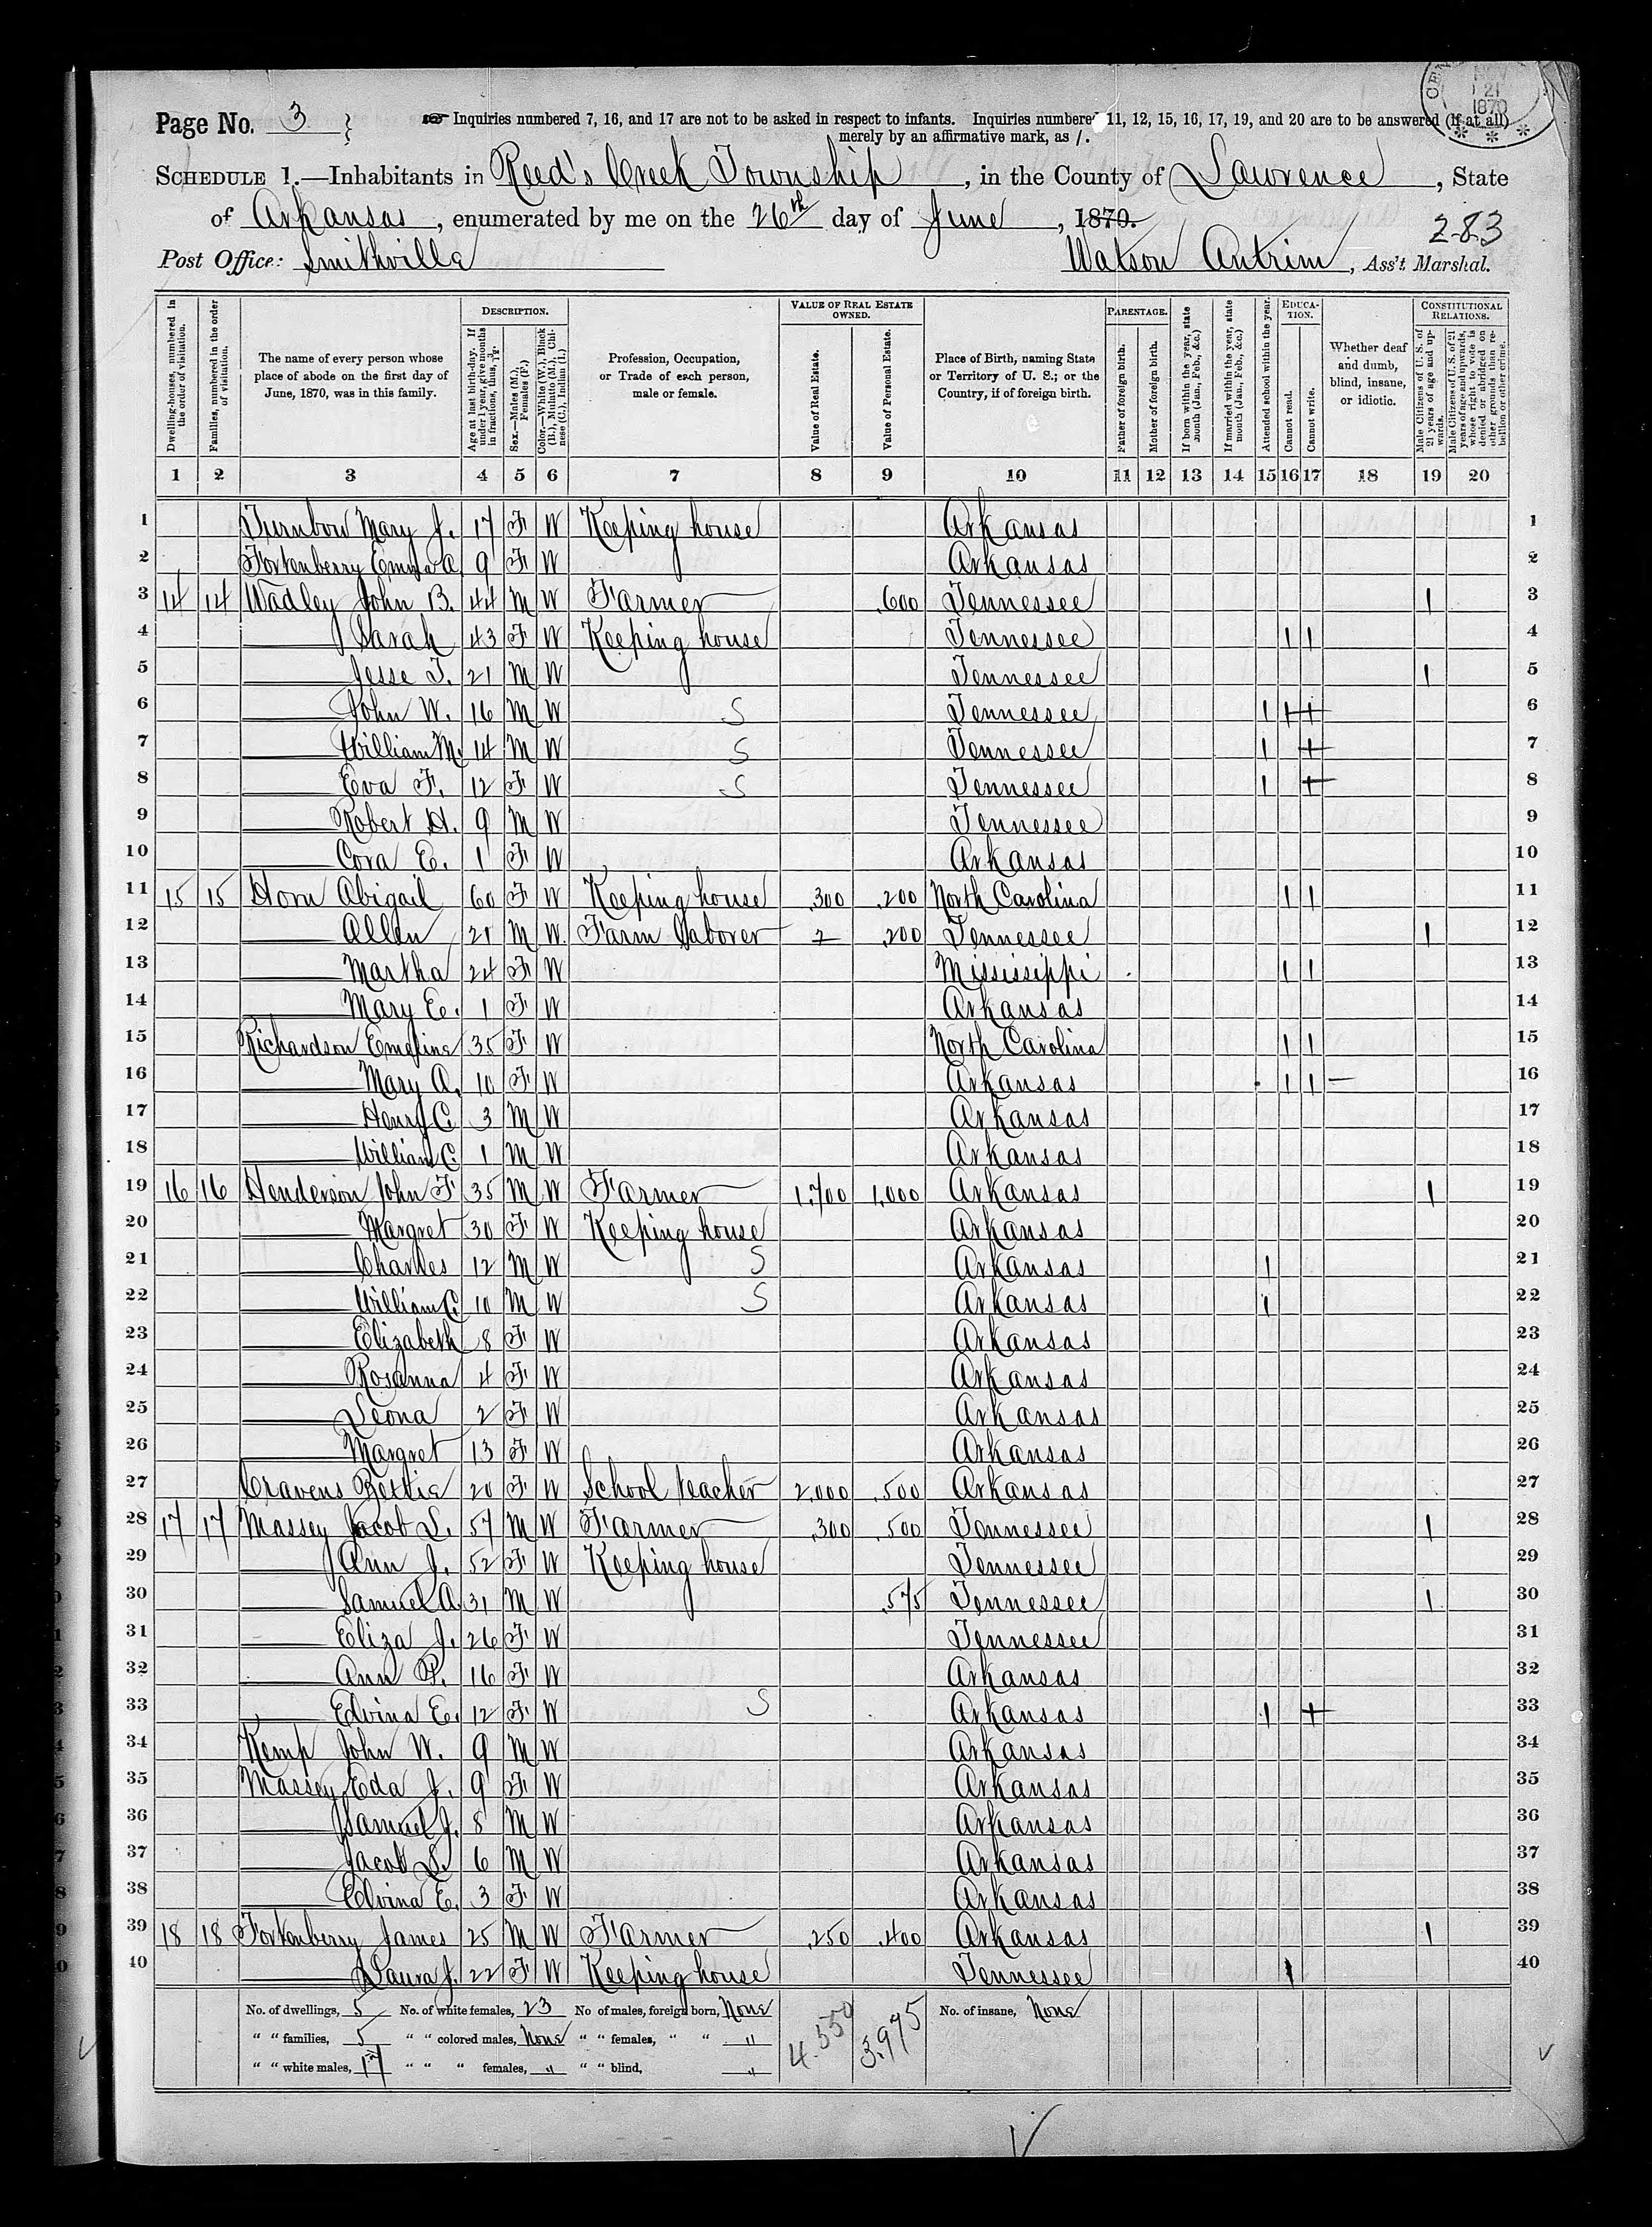 CEN NOV 21 1870 * * *
Page No. 3 } ☞ Inquiries numbered 7, 16, and 17 are not to be asked in respect to infants. Inquiries numbered 11, 12, 15, 16, 17, 19, and 20 are to be answered (if at all)
merely by an affirmative mark, as /.
SCHEDULE 1.—Inhabitants in Reed's Creek Township, in the County of Lawrence, State
of Arkansas, enumerated by me on the 26th day of June, 1870.
283
Post Office: Smithville Watson Antrim, Ass't Marshal.
Dwelling-houses, numbered in the order of visitation.
Families, numbered in the order of visitation.
The name of every person whose place of abode on the first day of June, 1870, was in this family.
DESCRIPTION.
Age at last birth-day. If under 1 year, give months in fractions, thus, 3/12.
Sex.—Males (M.), Females (F.)
Color.—White (W.), Black (B.), Mulatto (M.), Chinese (C.), Indian (I.)
Profession, Occupation, or Trade of each person, male or female.
VALUE OF REAL ESTATE OWNED.
Value of Real Estate.
Value of Personal Estate.
Place of Birth, naming State or Territory of U. S.; or the Country, if of foreign birth.
PARENTAGE.
Father of foreign birth.
Mother of foreign birth.
If born within the year, state month (Jan., Feb., &c.)
If married within the year, state month (Jan., Feb., &c.)
Attended school within the year.
EDUCATION.
Cannot read.
Cannot write.
Whether deaf and dumb, blind, insane, or idiotic.
CONSTITUTIONAL RELATIONS.
Male Citizens of U. S. of 21 years of age and upwards.
Male Citizens of U. S. of 21 years of age and upwards, whose right to vote is denied or abridged on other grounds than rebellion or other crime.
1 2 3 4 5 6 7 8 9 10 11 12 13 14 15 16 17 18 19 20
1 Turnbow Mary J. 17 F W Keeping house Arkansas 1
2 Fortenberry Emma A. 9 F W Arkansas 2
3 14 14 Wadley John B. 44 M W Farmer 600 Tennessee 1 3
4 —— Sarah 43 F W Keeping house Tennessee 1 1 4
5 —— Jesse T. 21 M W Tennessee 1 5
6 —— John W. 16 M W S Tennessee 1 1 + 6
7 —— William M. 14 M W S Tennessee 1 + 7
8 —— Eva F. 12 F W S Tennessee 1 + 8
9 —— Robert H. 9 M W Tennessee 9
10 —— Cora E. 1 F W Arkansas 10
11 15 15 Horn Abigail 60 F W Keeping house 300 200 North Carolina 1 1 11
12 —— Allen 21 M W. Farm Laborer 200 Tennessee 1 12
13 —— Martha 24 F W Mississippi 1 1 13
14 —— Mary E. 1 F W Arkansas 14
15 Richardson Emeline 35 F W North Carolina 1 1 15
16 —— Mary A. 10 F W Arkansas 1 1 — 16
17 —— Henry C. 3 M W Arkansas 17
18 —— William C. 1 M W Arkansas 18
19 16 16 Henderson John F 35 M W Farmer 1,700 1,000 Arkansas 1 19
20 —— Margret 30 F W Keeping house Arkansas 20
21 —— Charles 12 M W S Arkansas 1 21
22 —— William C. 10 M W S Arkansas 1 22
23 —— Elizabeth 8 F W Arkansas 23
24 —— Rosanna 4 F W Arkansas 24
25 —— Leona 2 F W Arkansas 25
26 —— Margret 13 F W Arkansas 26
27 Cravens Bettie 20 F W School teacher 2,000 500 Arkansas 27
28 17 17 Massey Jacob L. 57 M W Farmer 300 500 Tennessee 1 28
29 —— Ann J. 52 F W Keeping house Tennessee 29
30 —— Samuel A. 31 M W 575 Tennessee 1 30
31 —— Eliza J. 26 F W Tennessee 31
32 —— Ann P. 16 F W Arkansas 32
33 —— Edvina E. 12 F W S Arkansas 1 + 33
34 Kemp John W. 9 M W Arkansas 34
35 Massey Eda J. 9 F W Arkansas 35
36 —— Samuel J. 8 M W Arkansas 36
37 —— Jacob L. 6 M W Arkansas 37
38 —— Edvina E. 3 F W Arkansas 38
39 18 18 Fortenberry James 25 M W Farmer 250 400 Arkansas 1 39
40 —— Laura J. 22 F W Keeping house Tennessee 1 40
No. of dwellings, 5 No. of white females, 23 No of males, foreign born, None 4.550 3.975 No. of insane, None
" " families, 5 " " colored males, None " " females, " " "
" " white males, 17 " " " females, " " " blind, "